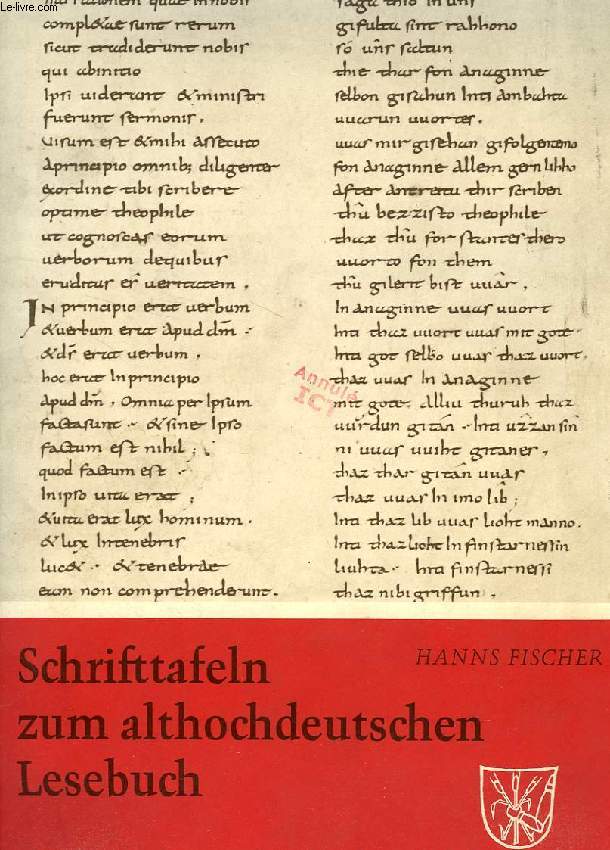 Le-livre.com
narrationem quae in nobis
compl&ae sunt rerum
sicut tradiderunt nobis
qui ab initio
Ipsi uiderunt & ministri
fuerunt sermonis.
Uisum est & mihi assecuto
A principio omnib; diligenter
& ordine tibi scribere
optime theophile
ut cognoscas eorum
uerborum de quibus
eruditus es ueritatem.
IN principio erat uerbum
& uerbum erat apud dm̄
& ds̄ erat uerbum.
hoc erat In principio
apud dm̄. Omnia per Ipsum
facta sunt & sine Ipso
factum est nihil;
quod factum est
In ipso uita erat;
& uita erat lux hominum.
& lux In tenebris
luc& & tenebrae
eam non comprehenderunt.
saga thio in uns
gifulta sint rahhono
só uns saltun
thie thar fon anaginne
selbon gisahun Inti ambahta
uuarun uuortes.
uuas mir gisehan gifolgentemo
fon anaginne allem gernlihho
After antreitu thir scriben
thû bezzisto theophile
thaz thû forstantes thero
uuorto fon them
thû gilerit bist uuâr.
In anaginne uuas uuort
Inti thaz uuort uuas mit gote
Inti got selbo uuas thaz uuort.
thaz uuas In anaginne
mit gote. Alliu thuruh thaz
uuurdun gitán Inti ûzzan sîn
ni uuas uuiht gitanes.
thaz thar gitán uuas
thaz uuas In imo lîb;
Inti thaz lib uuas lioht manno.
Inti thaz lioht In finstarnessin
liuhta Inti finstarnessi
thaz ni bigriffun.
Annulé
ICT
HANNS FISCHER
Schrifttafeln
zum althochdeutschen
Lesebuch